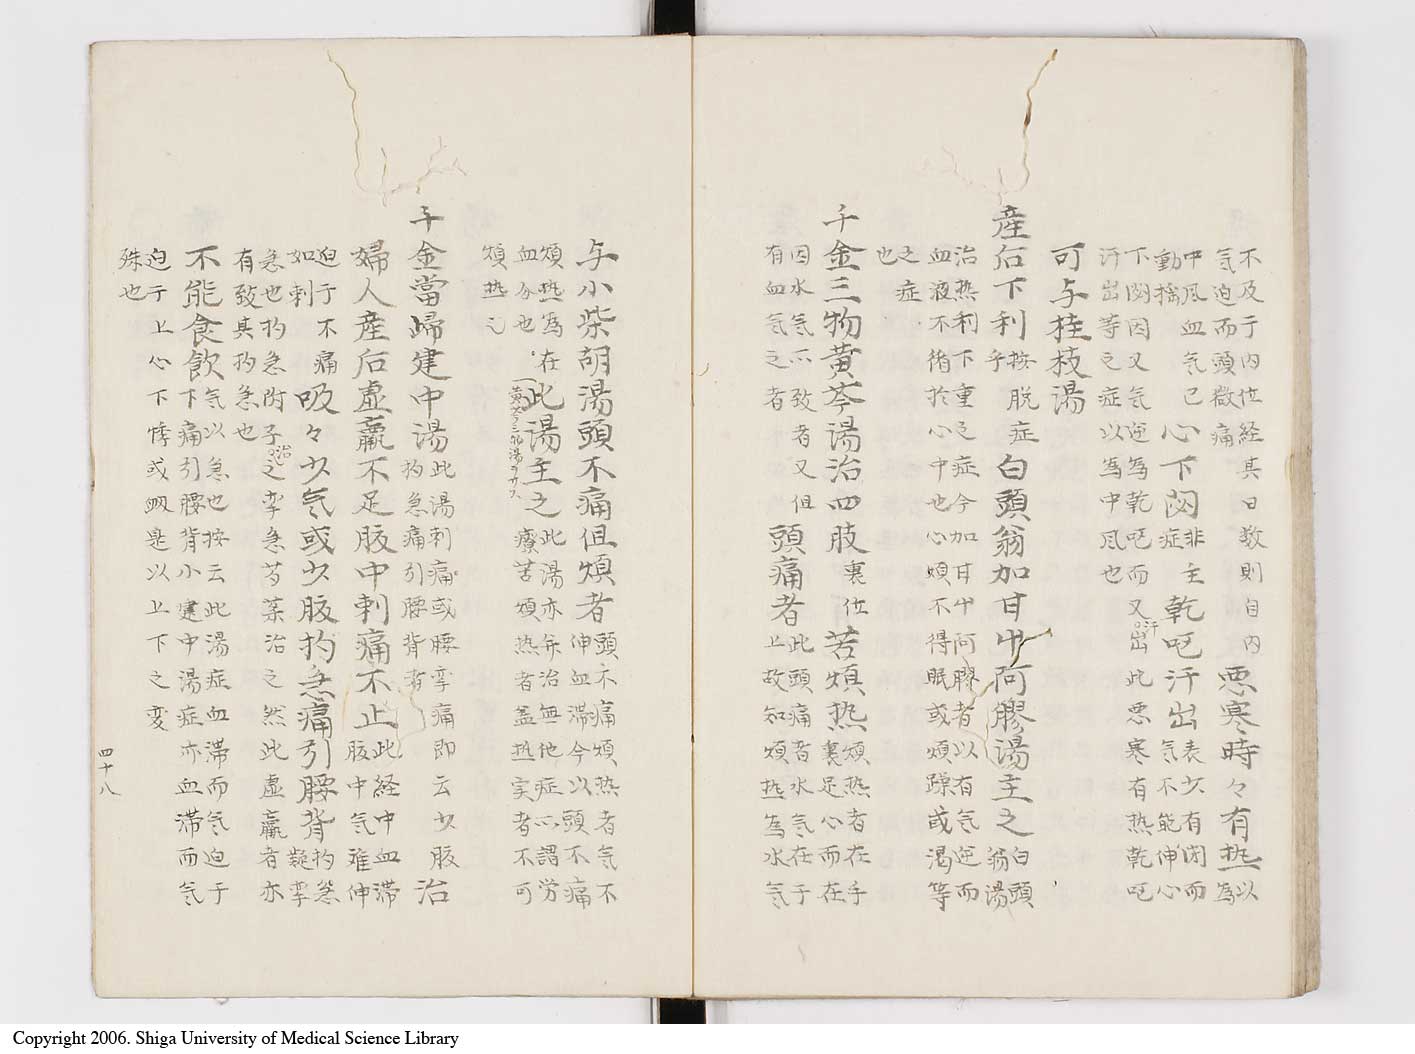 不及于内位経其日数則自内
気迫而頭微痛
悪寒時々有熱
以為
中風血気已
動揺
心下悶
非主
症
乾呕汗出
表少有閉而
気不能伸心
下悶因又気逆為乾呕而又汗出此悪寒有熱乾呕
汗出等之症以為中風也
可与桂枝湯
産后下利
按脱症
乎
白頭翁加甘艸阿膠湯主之
白頭
翁湯
治熱利下重之症今加甘艸阿膠者以有気逆而
血液不術於心中也心煩不得眠或煩躁或渇等
之症
也
千金三物黄芩湯治四肢
裏位
苦煩熱
煩熱者在手
裏足心而在
因水気所致者又但
有血気之者
頭痛者
此頭痛者水気在于
上故知煩熱為水気
与小柴胡湯頭不痛但煩者
頭不痛煩熱者気不
伸血滞今以頭不痛
煩熱為在
血分也
此湯主之
此湯亦并治無他症所謂労
療苦煩熱者盖熱実者不可
煩熱
千金當帰建中湯
此湯刺痛或腰挛痛即云少腹
拘急痛引腰背者
治
婦人産后虚羸不足腹中刺痛不止
此経中血滞
腹中気难伸
迫于不痛
如刺
吸々少気或少腹拘急痛引腰背
拘急
凝挛
急也拘急附子治之挛急芍薬治之然此虚羸者亦
有致其拘急也
不能食飲
気以急也按云此湯症血滞而気迫于
下痛引腰背小建中湯症亦血滞而気
迫于上心下悸或衂是以上下之変
殊也
四十八